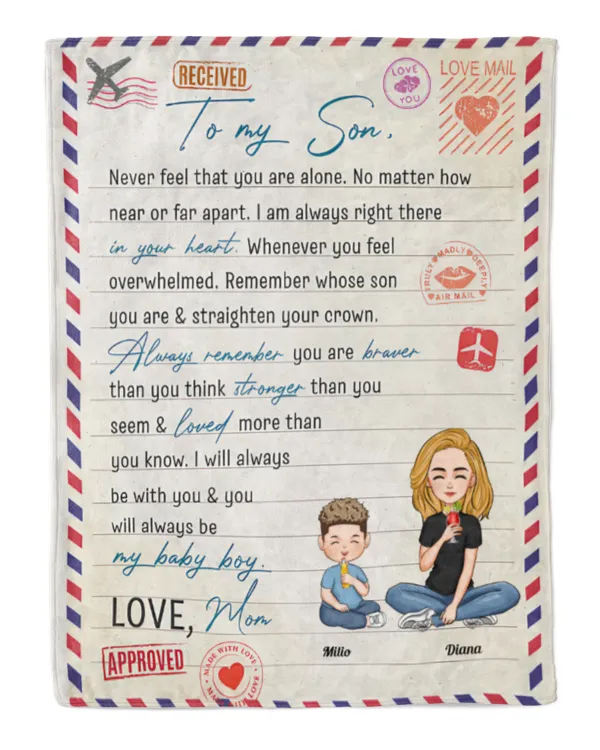 RECEIVED
LOVE YOU
LOVE MAIL
To my Son,
Never feel that you are alone. No matter how
near or far apart. I am always right there
in your heart. Whenever you feel
overwhelmed. Remember whose son
you are & straighten your crown.
TRULY MADLY DEEPLY
AIR MAIL
Always remember you are braver
than you think stronger than you
seem & loved more than
you know. I will always
be with you & you
will always be
my baby boy.
LOVE, Mom
Milio
Diana
APPROVED
MADE WITH LOVE